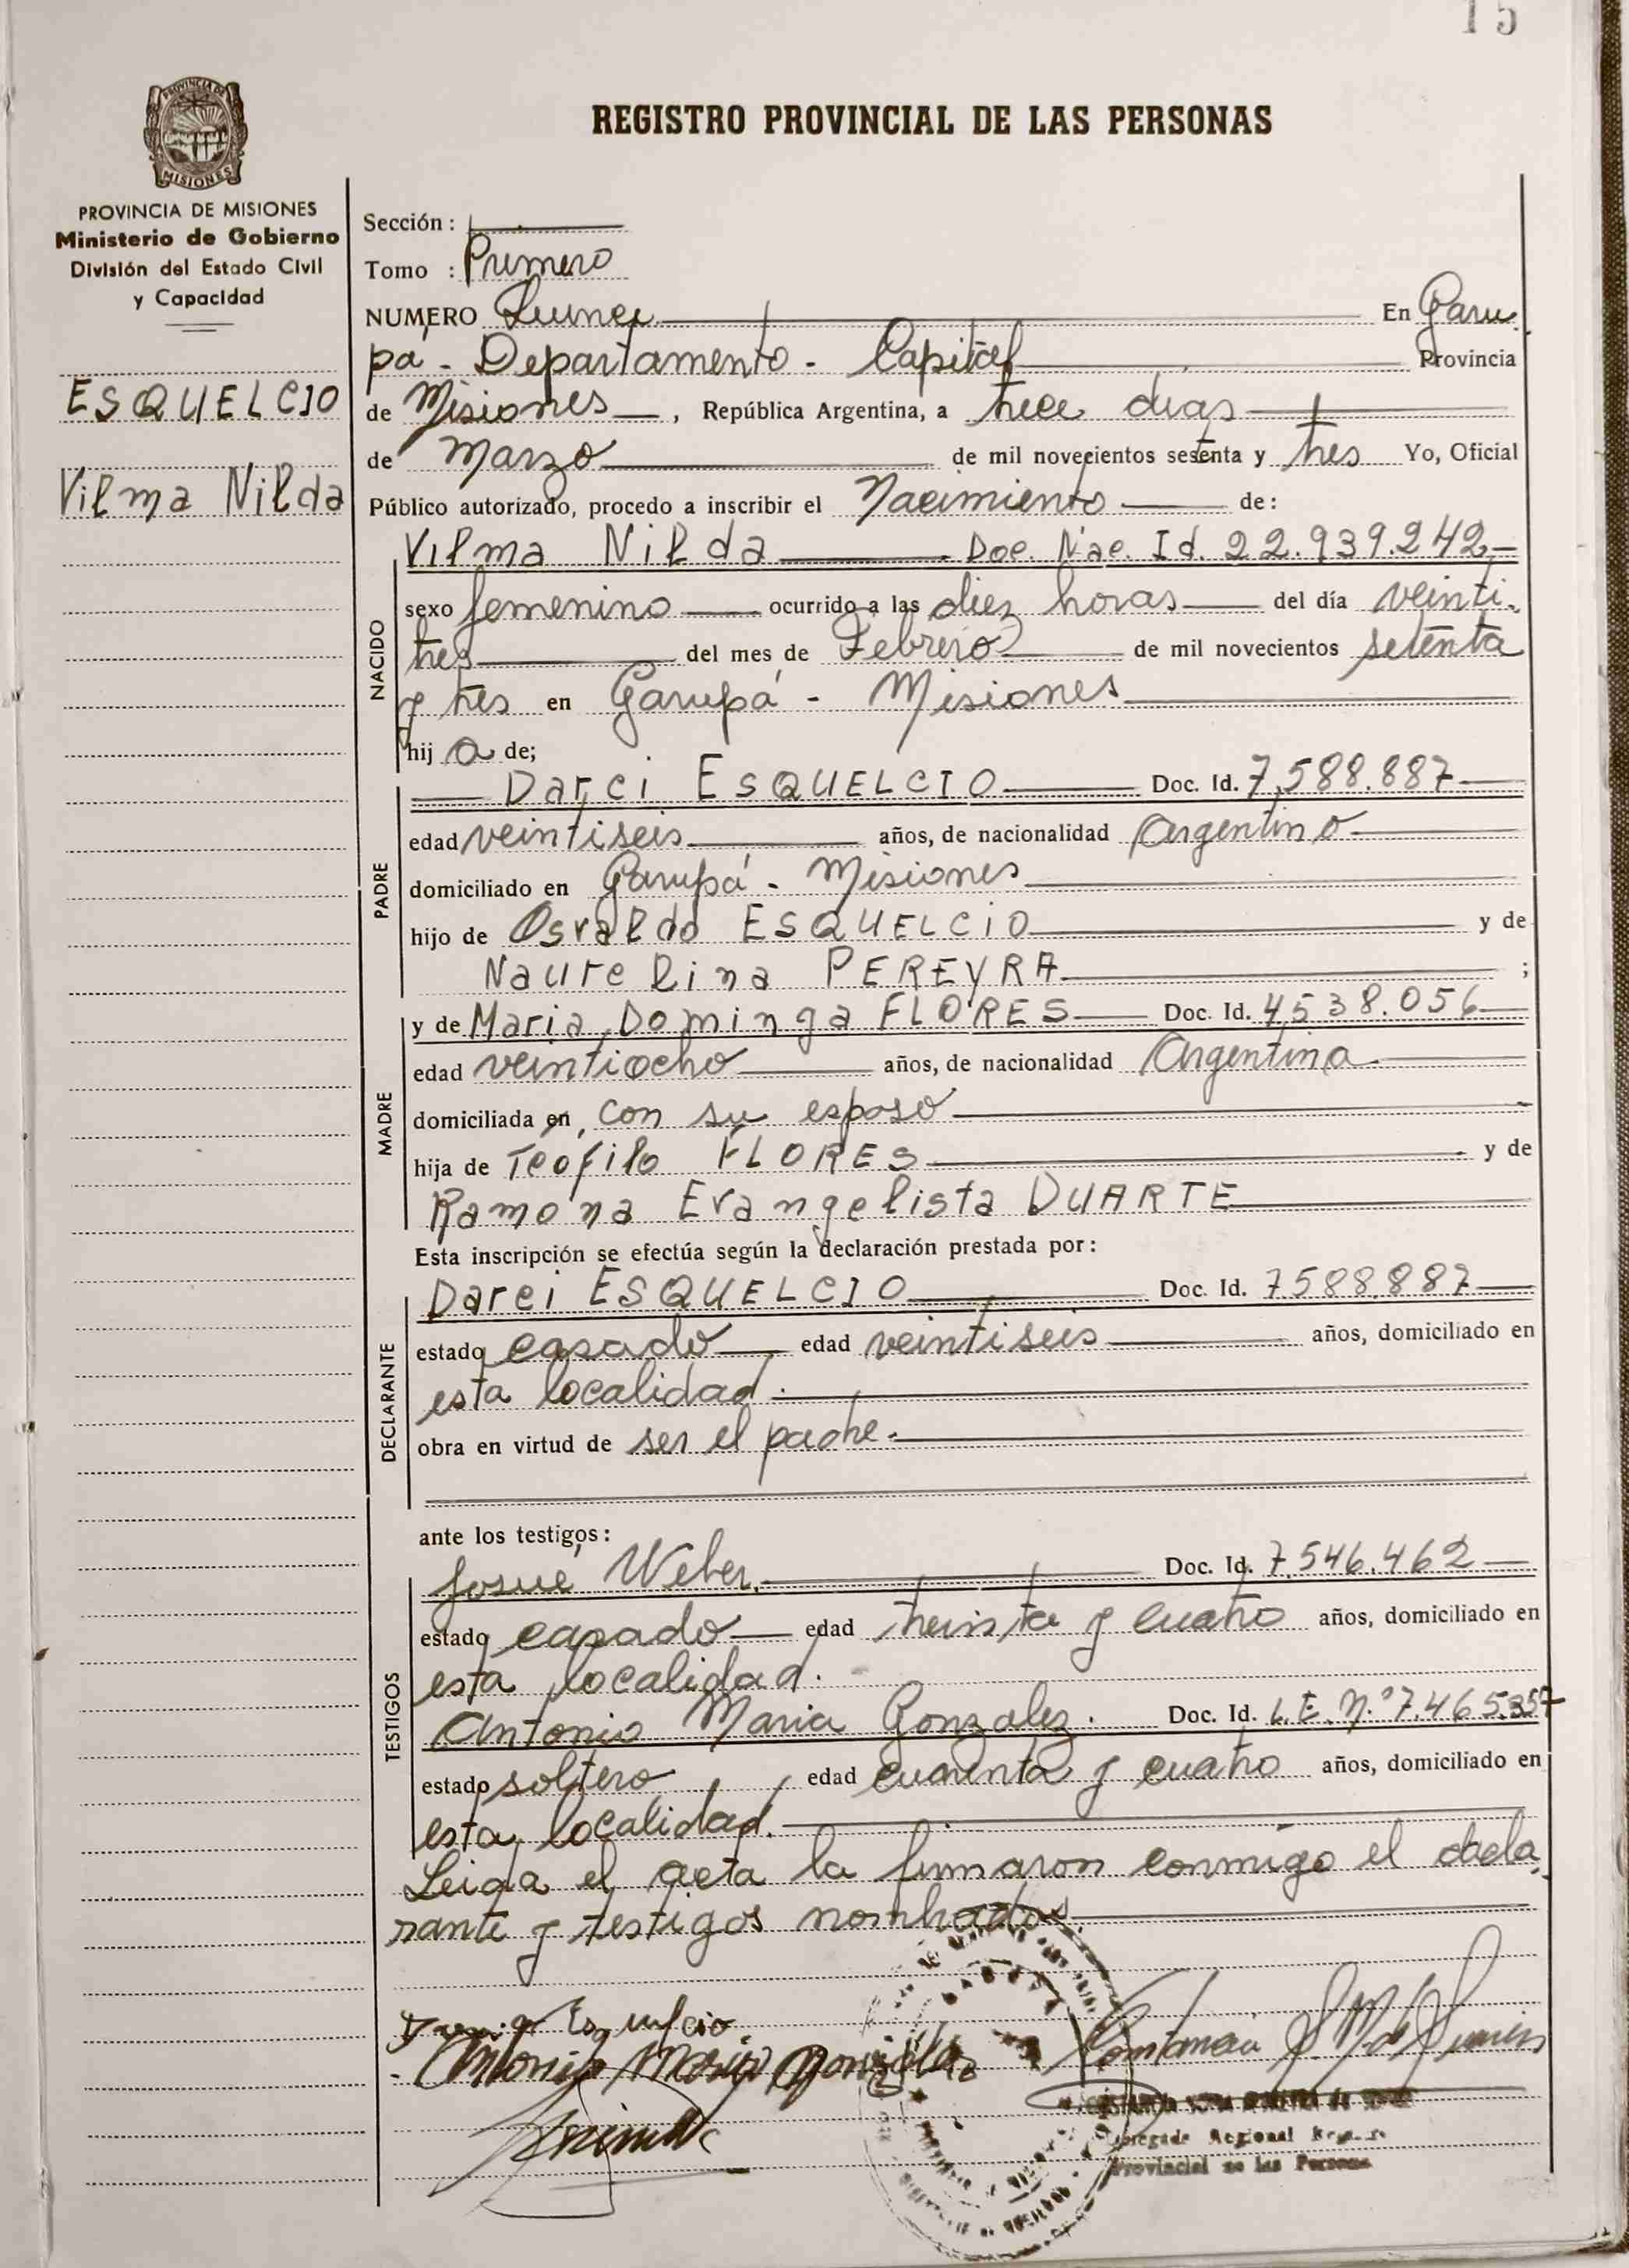 15
PROVINCIA DE
MISIONES
REGISTRO PROVINCIAL DE LAS PERSONAS
PROVINCIA DE MISIONES
Ministerio de Gobierno
División del Estado Civil
y Capacidad
ESQUELCIO
Vilma Nilda
Sección :
Tomo : Primero
NUMERO Quince En Garu
pá - Departamento - Capital Provincia
de Misiones , República Argentina, a trece dias
de Marzo de mil novecientos sesenta y tres Yo, Oficial
Público autorizado, procedo a inscribir el Nacimiento de:
NACIDO
Vilma Nilda Doc. Nac. Id. 22.939.242
sexo femenino ocurrido a las diez horas del día veinti-
tres del mes de Febrero de mil novecientos setenta
y tres en Garupá - Misiones
hij a de;
PADRE
Darci ESQUELCIO Doc. Id. 7,588.887
edad veintiseis años, de nacionalidad Argentino
domiciliado en Garupá - Misiones
hijo de Osvaldo ESQUELCIO y de
Naurelina PEREYRA ;
MADRE
y de Maria Dominga FLORES Doc. Id. 4,538.056
edad veintiocho años, de nacionalidad Argentina
domiciliada en, con su esposo
hija de Teófilo FLORES y de
Ramona Evangelista DUARTE
Esta inscripción se efectúa según la declaración prestada por:
DECLARANTE
Darci ESQUELCIO Doc. Id. 7588.887
estado casado edad veintiseis años, domiciliado en
esta localidad.
obra en virtud de ser el padre.
ante los testigos:
TESTIGOS
Josué Weber. Doc. Id. 7.546.462
estado casado edad treinta y cuatro años, domiciliado en
esta localidad.
Antonio Maria Gonzalez. Doc. Id. L.E. N.º 7.465.357
estado soltero edad cuarenta y cuatro años, domiciliado en
esta localidad.
Leida el acta la firmaron conmigo el decla
rante y testigos nombrados.
Esquelcio
Antonio Maria Gonzalez
Delegada Regional
Provincial de las Personas